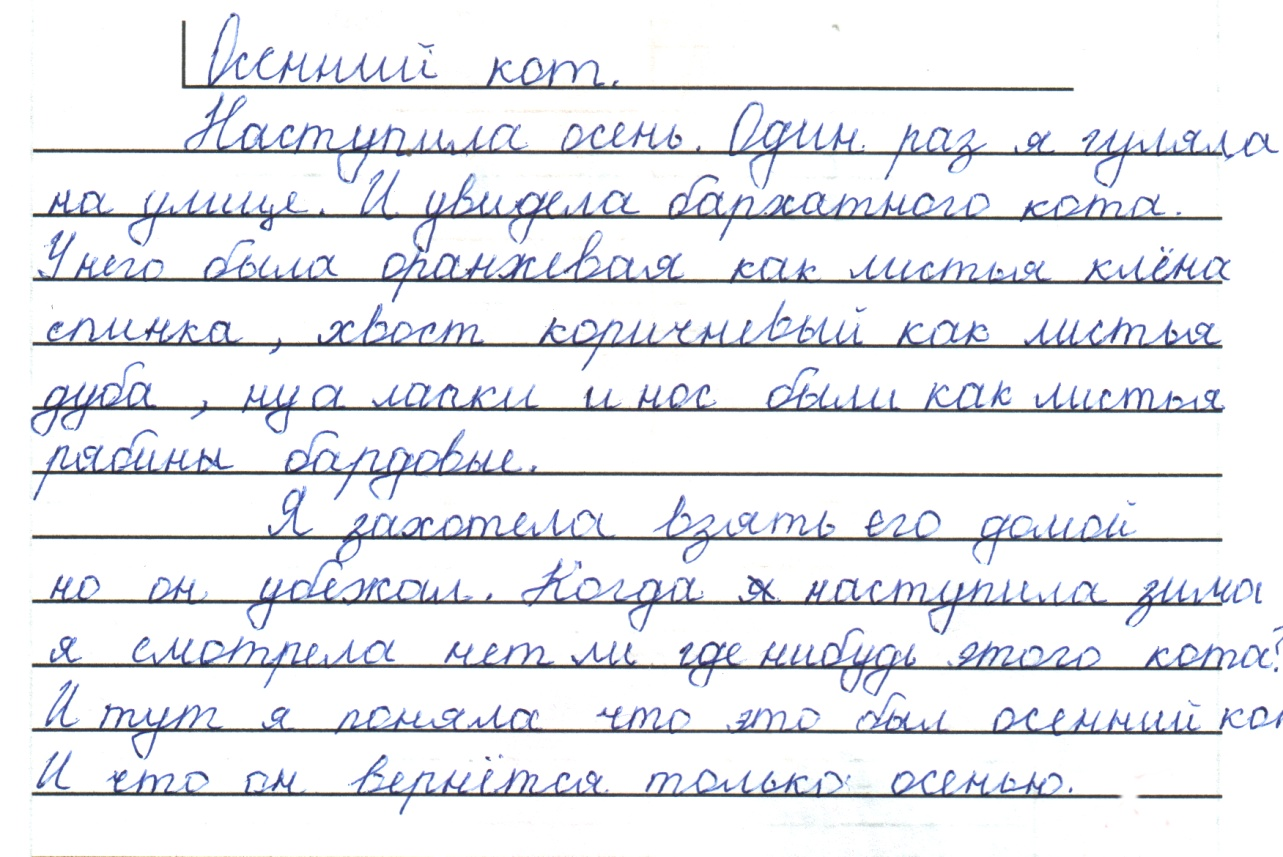 Осенний кот.
Наступила осень. Один раз я гуляла
на улице. И увидела бархатного кота.
У него была оранжевая как листья клёна
спинка, хвост коричневый как листья
дуба, ну а лапки и нос были как листья
рябины бардовые.
Я захотела взять его домой
но он убежал. Когда наступила зима
я смотрела нет ли где нибудь этого кота?
И тут я поняла что это был осенний кот
И что он вернётся только осенью.